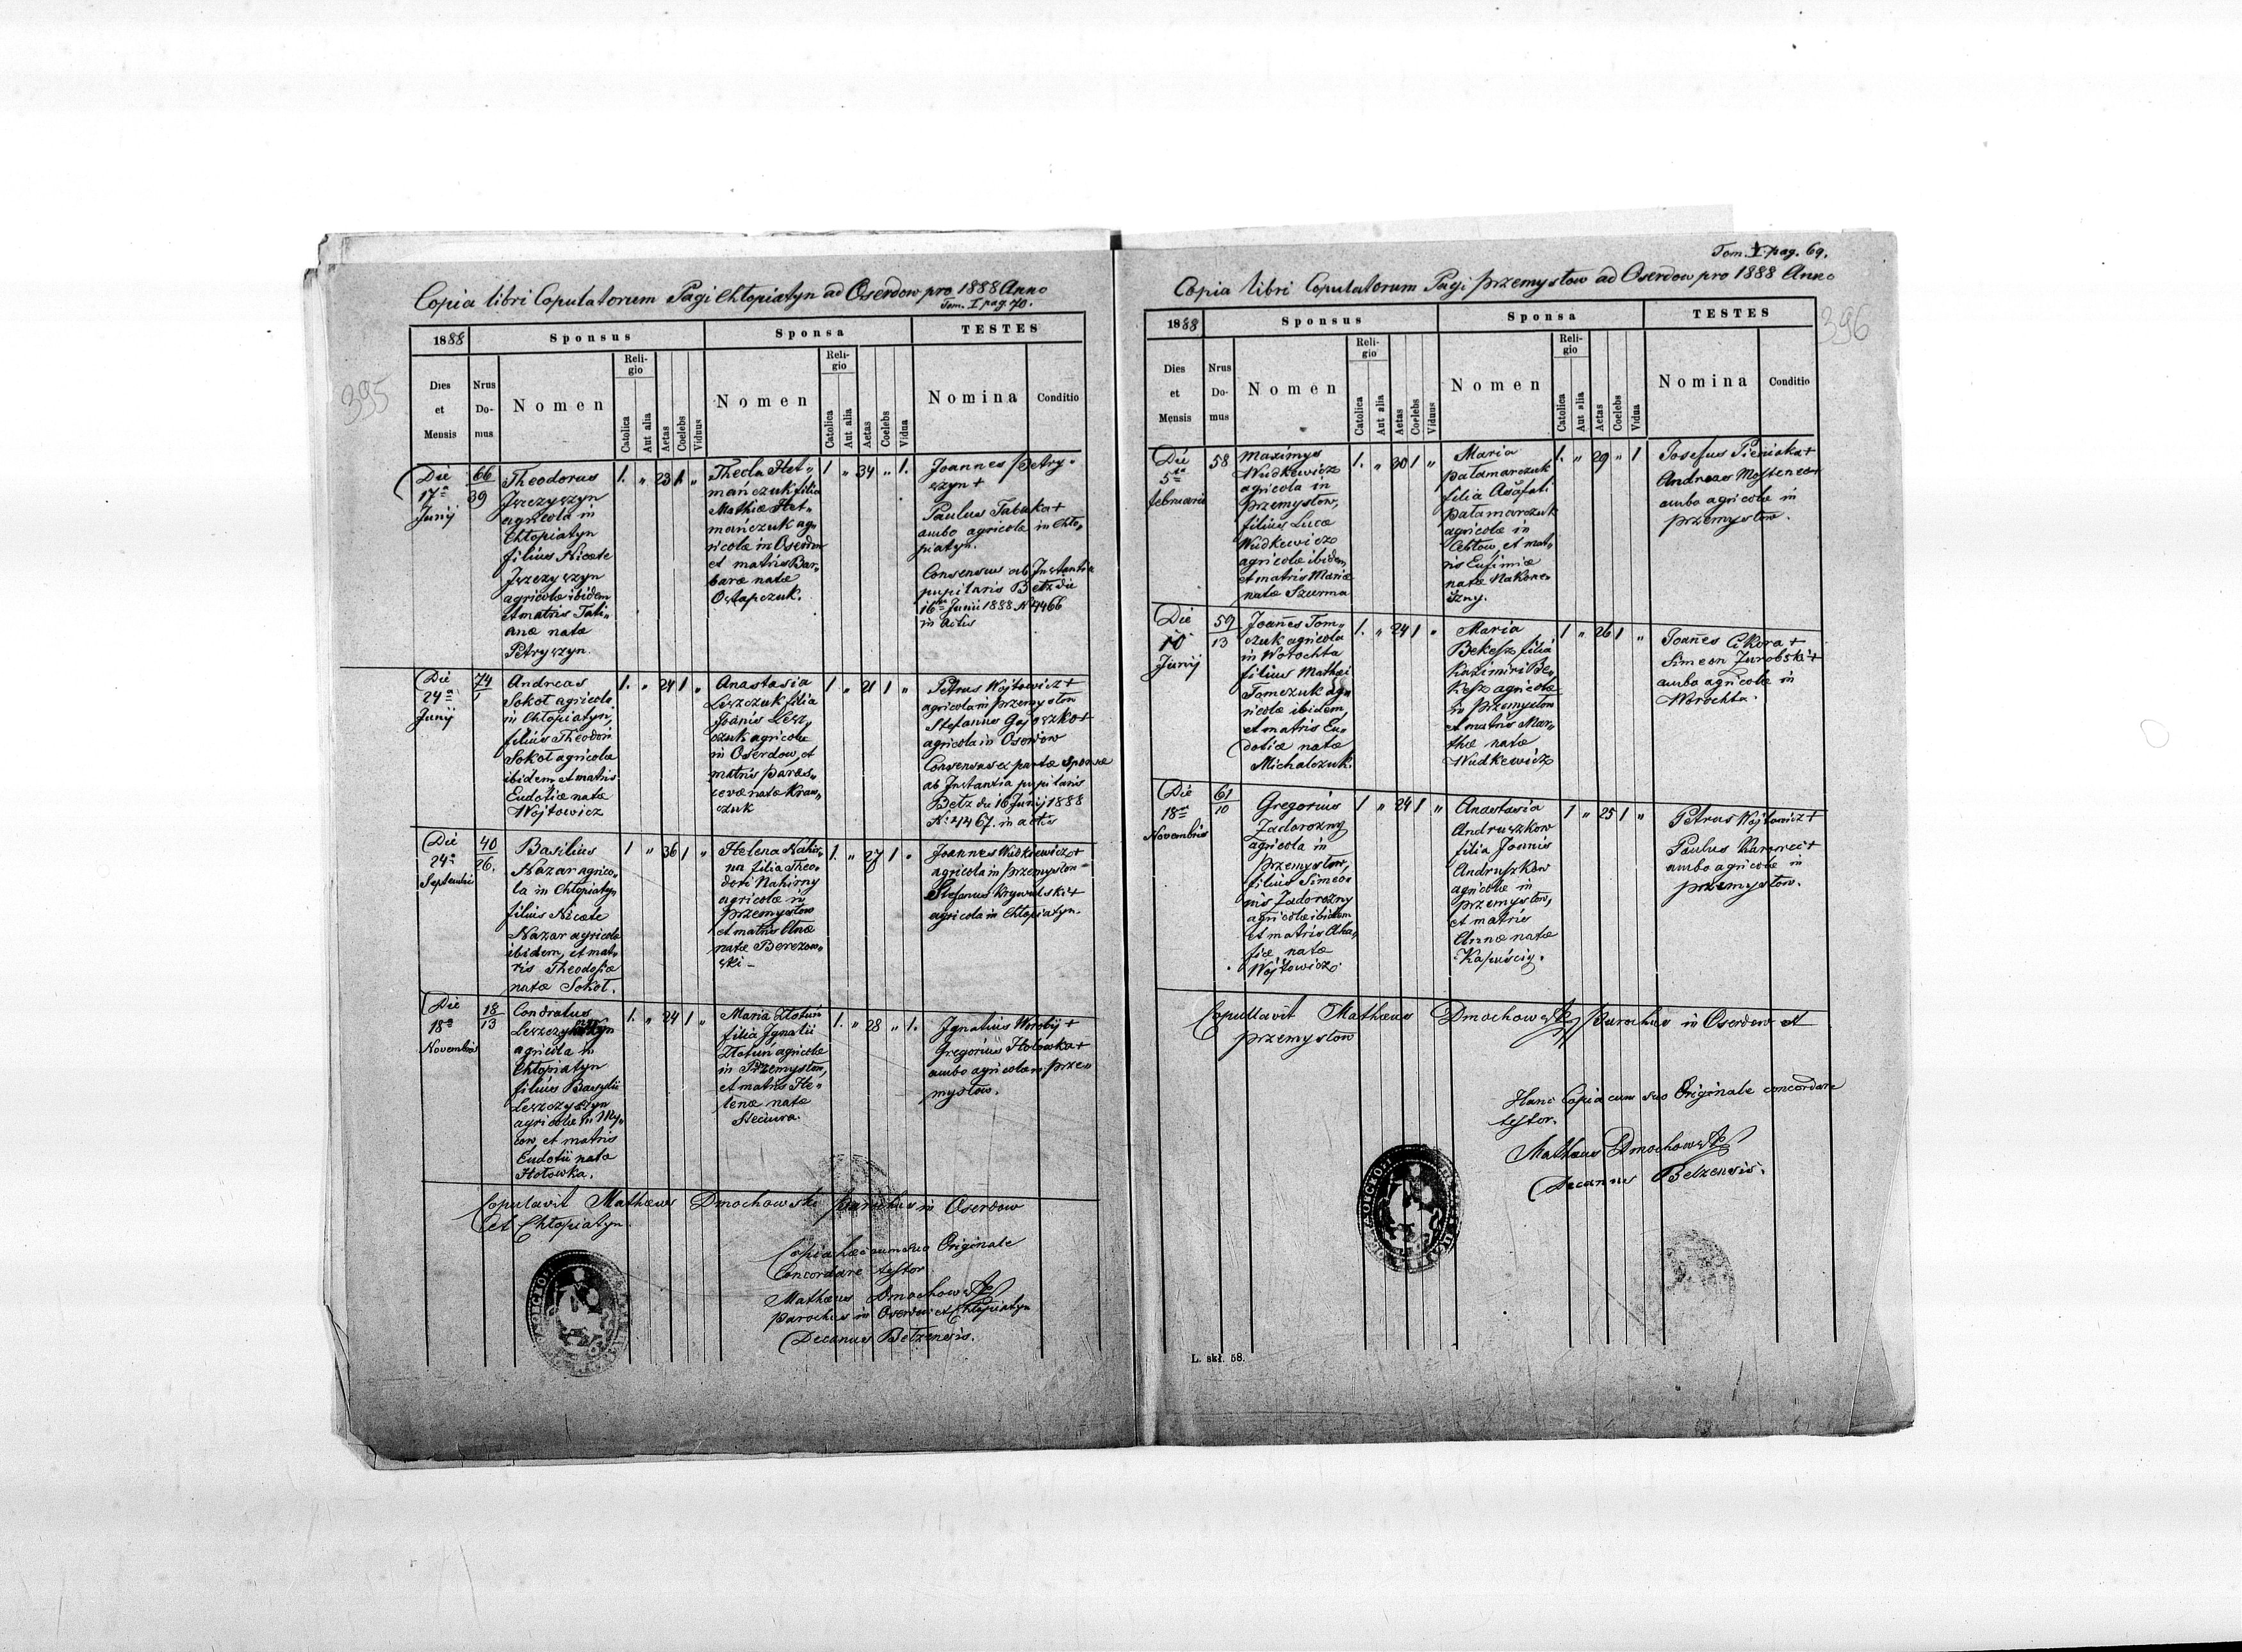 Copia libri Copulatorum Pagi Chłopiatyn ad Oserdow pro 1888 Anno
Tom. I pag. 70.
395
1888 Sponsus Sponsa TESTES
Dies et Mensis
Nrus Domus
Nomen
Religio
Catolica
Aut alia
Aetas
Coelebs
Viduus
Nomen
Religio
Catolica
Aut alia
Aetas
Coelebs
Vidua
Nomina
Conditio
Die
17a
Junij
66
39
Theodorus
agricola in
Chłopiatyn
filius Nicetae
agricolae ibidem
et matris Tati„
anae natae
Petryszyn.
1. „ 23 1 „
Thecla Het„
mańczuk filia
Mathiae Het„
mańczuk ag„
ricolae in Oserdow
et matris Bar„
barae natae
Ostapczuk.
1 „ 34 „ 1.
Joannes Petry„
szyn +
Paulus Tabuka +
ambo agricolae in Chło„
piatyn.
Consensus ab Instantia
pupilaris Bełz die
16a Junii 1888 N 4466
in actis
Die
24a
Junij
74
1
Andreas
Sokoł agricola
in Chłopiatyn,
filius Theodori
Sokoł agricolae
ibidem et matris
Eudotiae natae
Wojtowicz
1. „ 24 1 „
Anastasia
Leszczuk filia
Joanis Lesz„
czuk agricolae
in Oserdow, et
matris Paras„
cevae natae Kraw„
czuk
1 „ 21 1 „
Petrus Wojtowicz +
agricola in Przemysłow
Stefanus Gajoszko +
agricola in Oserdow
Consensus ex parte Sponsae
ab Instantia pupilaris
Bełz die 16 Junij 1888
N: 4467. in actis
Die
24a
Septembris
40
26.
Basilius
Nazar agrico„
la in Chłopiatyn
filius Nicetae
Nazar agricolae
ibidem, et mat„
ris Theodosiae
natae Sokoł.
1 „ 36 1 „
Helena Nahir„
na filia Theo„
dori Nahirny
agricolae in
Przemysłow
et matris Anae
natae Berezow„
ski –
1. „ 27 1 „
Joannes Wudkiewicz +
agricola in Przemysłow
Stefanus Krywulski +
agricola in Chłopiatyn.
Die
18a
Novembris
18
13
Condratus
agricola in
Chłopiatyn
filius Basylii
Leszczyszyn
agricolae in My„
cow, et matris
Eudotii nata
Hołowka.
1. „ 24 1 „
Maria Złotuń
filia Ignatii
Złotuń agricolae
in Przemysłow,
et matris He„
lenae natae
Steciura.
1. „ 28 „ 1.
Ignatius Worobij +
Gregorius Hołowka +
ambo agricolae in Prze„
mysłow.
Copulavit Mathaeus Dmochowski parochus in Oserdow
et Chłopiatyn.
Copia haec cum suo Originale
Concordare testor
Mathaeus Dmochowski
parochus in Oserdow et Chłopiatyn
Decanus Bełzensis.
Tom. I. pag. 69.
Copia libri Copulatorum Pagi Przemysłow ad Oserdow pro 1888 Anno
396
1888 Sponsus Sponsa TESTES
Dies et Mensis
Nrus Domus
Nomen
Religio
Catolica
Aut alia
Aetas
Coelebs
Viduus
Nomen
Religio
Catolica
Aut alia
Aetas
Coelebs
Vidua
Nomina
Conditio
Die
5a
februarii
58
Maximus
Wudkewicz
agricola in
Przemysłow,
filius Lucae
Wudkewicz
agricolae ibidem
et matris Mariae
natae Szurma
1. „ 30 1 „
Maria
Pałamarczuk
filia Asafati
Pałamarczuk
agricolae in
Cebłow, et mat„
ris Eufimiae
natae Nakone„
szny.
1. „ 29 „ 1
Josefus Pieniaka +
Andreas
ambo agricolae in
Przemysłow.
Die
10
Junij
59
13
Joanes Tom„
czuk agricola
in Worochta
filius Mathei
Tomczuk ag„
ricolae ibidem,
et matris Eu„
dotiae natae
Michalczuk.
1. „ 24 1 „
Maria
Bekesz filia
Kazimiri Be„
kesz agricolae
in Przemysłow
et matris Mar„
thae natae
Wudkewicz
1 „ 26 1 „
Joanes Cikora +
Simeon +
ambo agricolae in
Worochta.
Die
18a
Novembris
61
10
Gregorius
Zadorozny
agricola in
Przemysłow,
filius Simeo„
nis Zadorozny
agricolae ibidem
et matris Aha„
fiae, natae
Wojtowicz.
1 „ 24 1 „
Anastasia
Andruszkow
filia Joannis
Andruszkow
agricolae in
Przemysłow,
et matris
Annae natae
Kapuściy.
1 „ 25 1 „
Petrus Wojtowicz +
Paulus +
ambo agricolae in
Przemysłow.
Copulavit Mathaeus Dmochowski Parochus in Oserdow et
Przemysłow
Hanc Copia cum suo Originale concordare
testor.
Mathaeus Dmochowski
Decanus Bełzensis.
L. skł. 58.